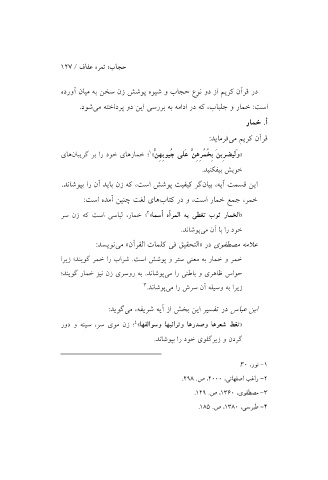 حجاب؛ ثمره عفاف / ۱۲۷
در قرآن کریم از دو نوع حجاب و شیوه پوشش زن سخن به میان آورده
است: خمار و جلباب، که در ادامه به بررسی این دو پرداخته می‌شود.
أ. خمار
قرآن کریم می‌فرماید:
«وَلْیَضْرِبنَ بِخُمُرِهِنَّ عَلَی جُیوبِهِنَّ»۱؛ خمارهای خود را بر گریبان‌های
خویش بیفکنید.
این قسمت آیه، بیان‌گر کیفیت پوشش است، که زن باید آن را بپوشاند.
خمر، جمع خمار است، و در کتاب‌های لغت چنین آمده است:
«الخمار ثوب تغطی به المرأه رأسها»۲؛ خمار، لباسی است که زن سر
خود را با آن می‌پوشاند.
علامه مصطفوی در «التحقیق فی کلمات القرآن» می‌نویسد:
خمر و خمار به معنی ستر و پوشش است. شراب را خمر گویند؛ زیرا
حواس ظاهری و باطنی را می‌پوشاند. به روسری زن نیز خمار گویند؛
زیرا به وسیله آن سرش را می‌پوشاند.۳
ابن عباس در تفسیر این بخش از آیه شریفه، می‌گوید:
«تغط شعرها وصدرها وترائبها وسوالفها»۴؛ زن موی سر، سینه و دور
گردن و زیرگلوی خود را بپوشاند.
۱- نور، ۳۰.
۲- راغب اصفهانی، ۲۰۰۰، ص. ۲۹۸.
۳- مصطفوی، ۱۳۶۰، ص. ۱۲۹.
۴- طبرسی، ۱۳۸۰، ص. ۱۸۵.